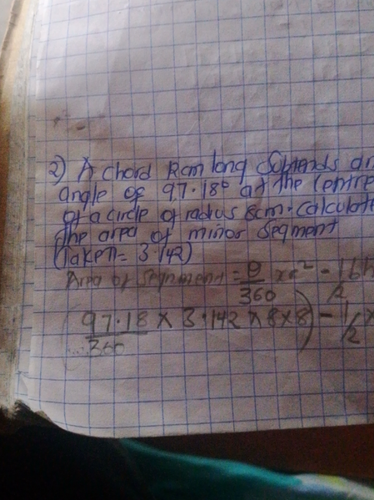 2) A chord 12cm long Subtends an
angle of 97.18° at the Centre
of a circle of radius 8cm. Calculate
the area of minor Segment
(Take π = 3.142)
Area of Segment = θ/360 πr² - 1/2
(97.18/360 × 3.142 × 8×8) - 1/2 ×